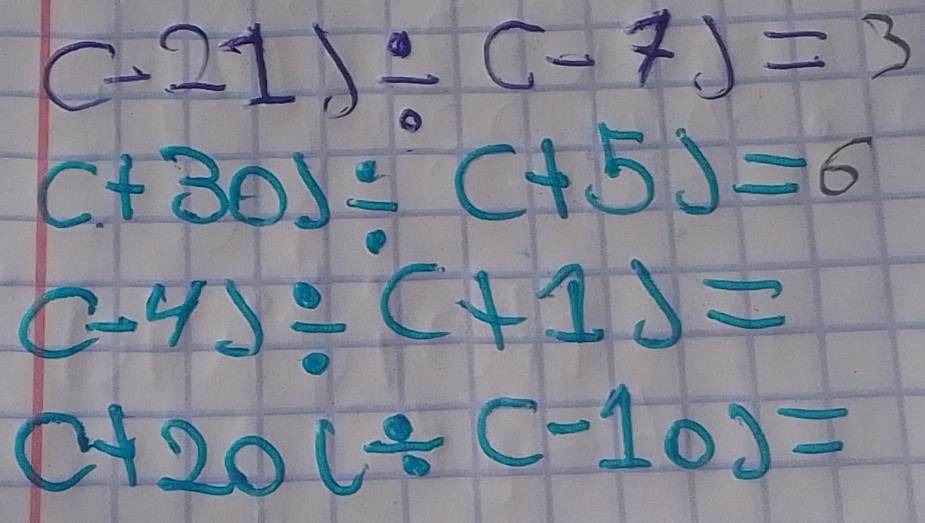 (-21) ÷ (-7) = 3
(+30) ÷ (+5) = 6
(-4) ÷ (+1) =
(+20( ÷ (-10) =